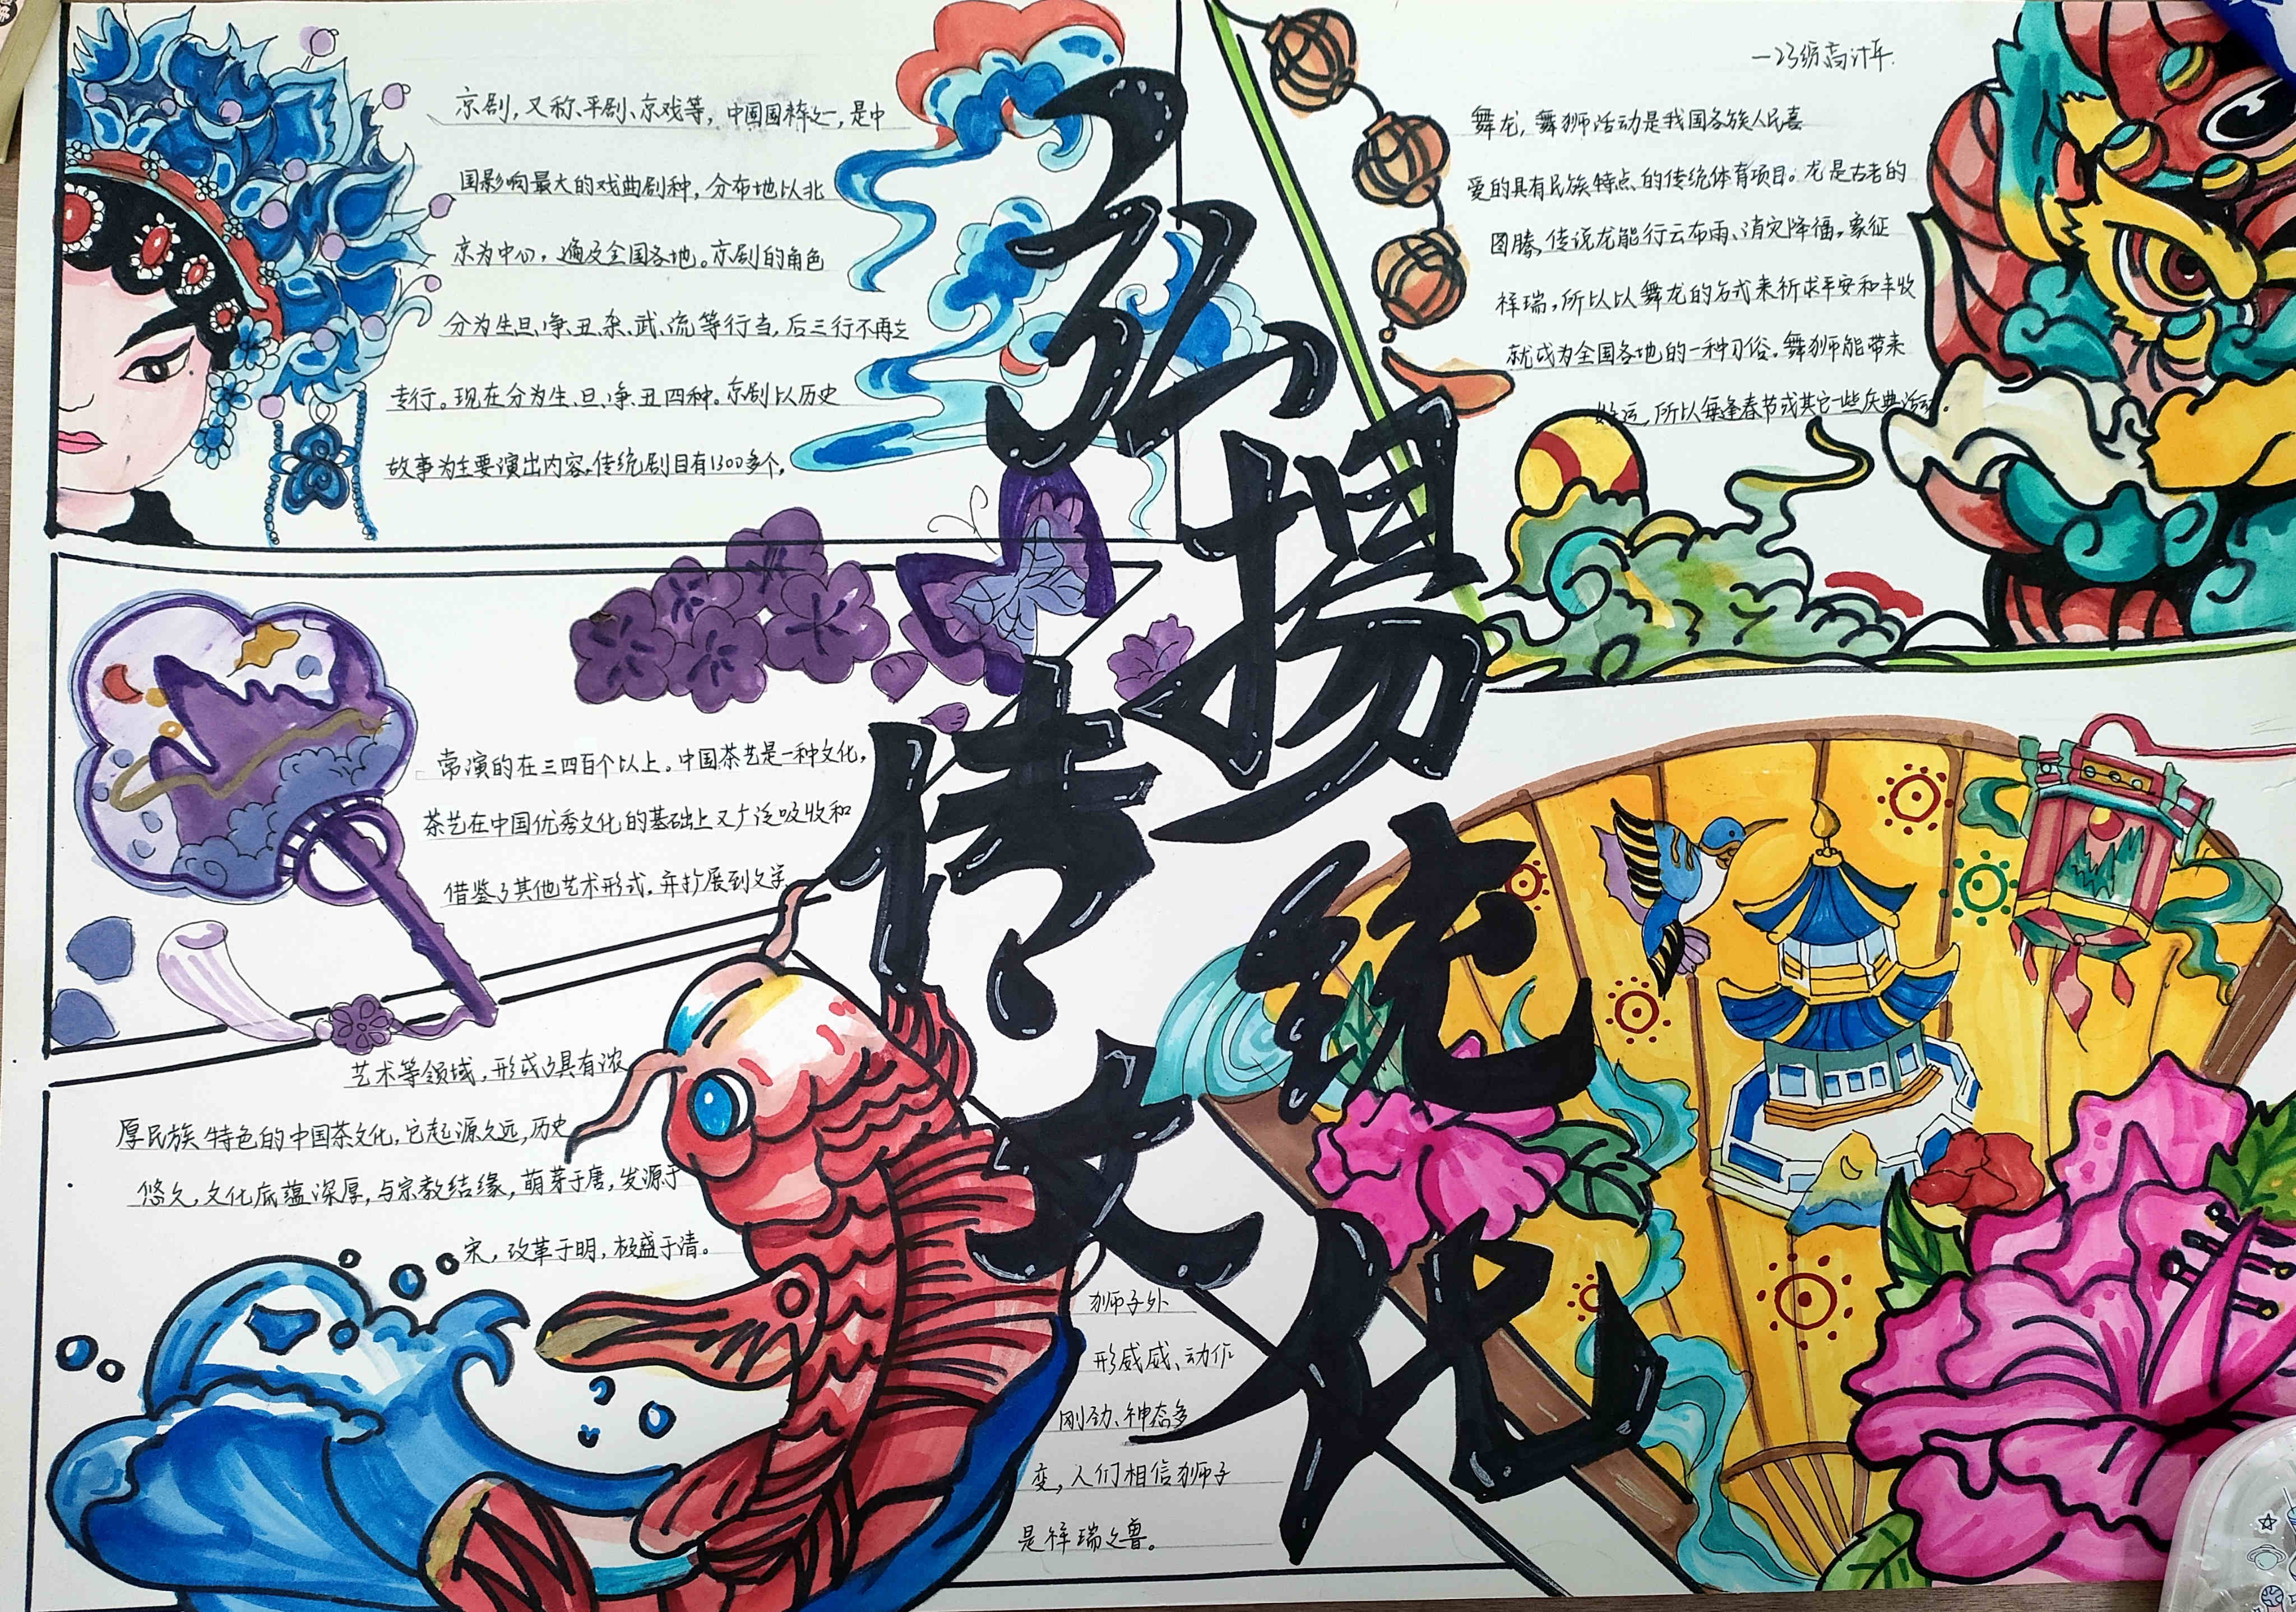 弘扬
传统
文化
京剧，又称、平剧、京戏等，中国国粹之一，是中
国影响最大的戏曲剧种，分布地以北
京为中心，遍及全国各地。京剧的角色
分为生、旦、净、丑、杂、武、流等行当，后三行不再立
专行。现在分为生、旦、净、丑四种。京剧以历史
故事为主要演出内容。传统剧目有1300多个，
常演的在三四百个以上。中国茶艺是一种文化，
茶艺在中国优秀文化的基础上又广泛吸收和
借鉴了其他艺术形式，并扩展到文学、
艺术等领域，形成了具有浓
厚民族特色的中国茶文化，它起源久远，历史
悠久，文化底蕴深厚，与宗教结缘，萌芽于唐，发源于
宋，改革于明，极盛于清。
舞龙，舞狮活动是我国各族人民喜
爱的具有民族特点的传统体育项目。龙是古老的
图腾，传说龙能行云布雨、消灾降福，象征
祥瑞，所以以舞龙的方式来祈求平安和丰收
就成为全国各地的一种习俗。舞狮能带来
好运，所以每逢春节或其它一些庆典活动。
狮子外
形威威、动作
刚劲、神态多
变，人们相信狮子
是祥瑞之兽。